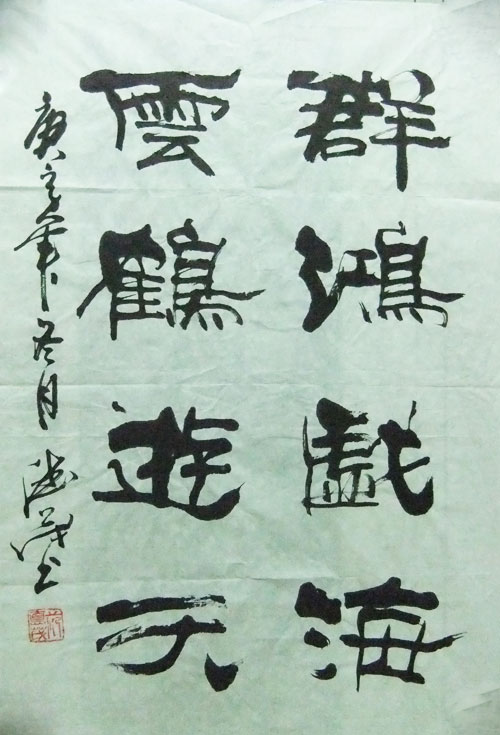 群鴻戯海
雲鶴遊天
庚寅年冬月